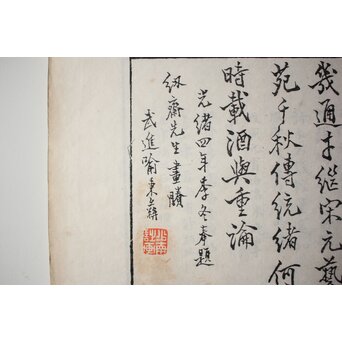 幾通才继宋元藝
苑千秋傳統緒何
時載酒與重論
光緒四年季冬奉題
紉齋先生畫賸
武進喻